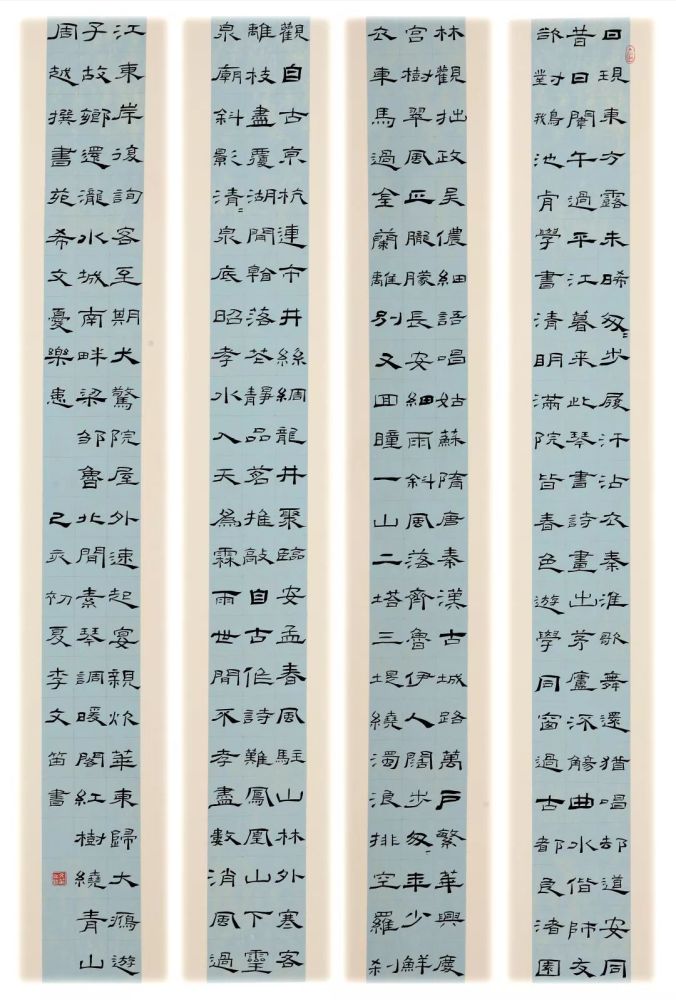 日現東方露未晞匆匆步履汗沾衣秦淮歌舞還猶唱卻道安同
昔日闌午過平江暮來此琴書詩畫出茅廬流觴曲水偕師友
敬對鵝池肯學書清明滿院皆春色遊學同窗過古都良渚園
林觀拙政吳儂細語唱姑蘇隋唐秦漢古城路萬戶繁華興慶
宮樹翠風正朦朧長安細雨斜風落齊魯伊人闊步匆匆年少鮮
衣車馬過金蘭離別又回瞳一山二塔三堤繞濁浪排空羅剎
觀自古京杭連市井絲綢龍井聚臨安孟春風駐山林外寒客
離枝盡覆湖間翰落花靜品茗推敲自古作詩難鳳凰山下靈
泉廟斜影清清泉底昭孝水入天為霖雨世間不孝盡數消風過
江東岸復詢客至期犬驚院屋外速起宴親炊華東歸大鴻遊
子故鄉還瀧水城南畔梁鄒魯北聞素琴調暖閣紅樹繞青山
周越撰書苑希文憂樂患
己亥初夏李文笛書